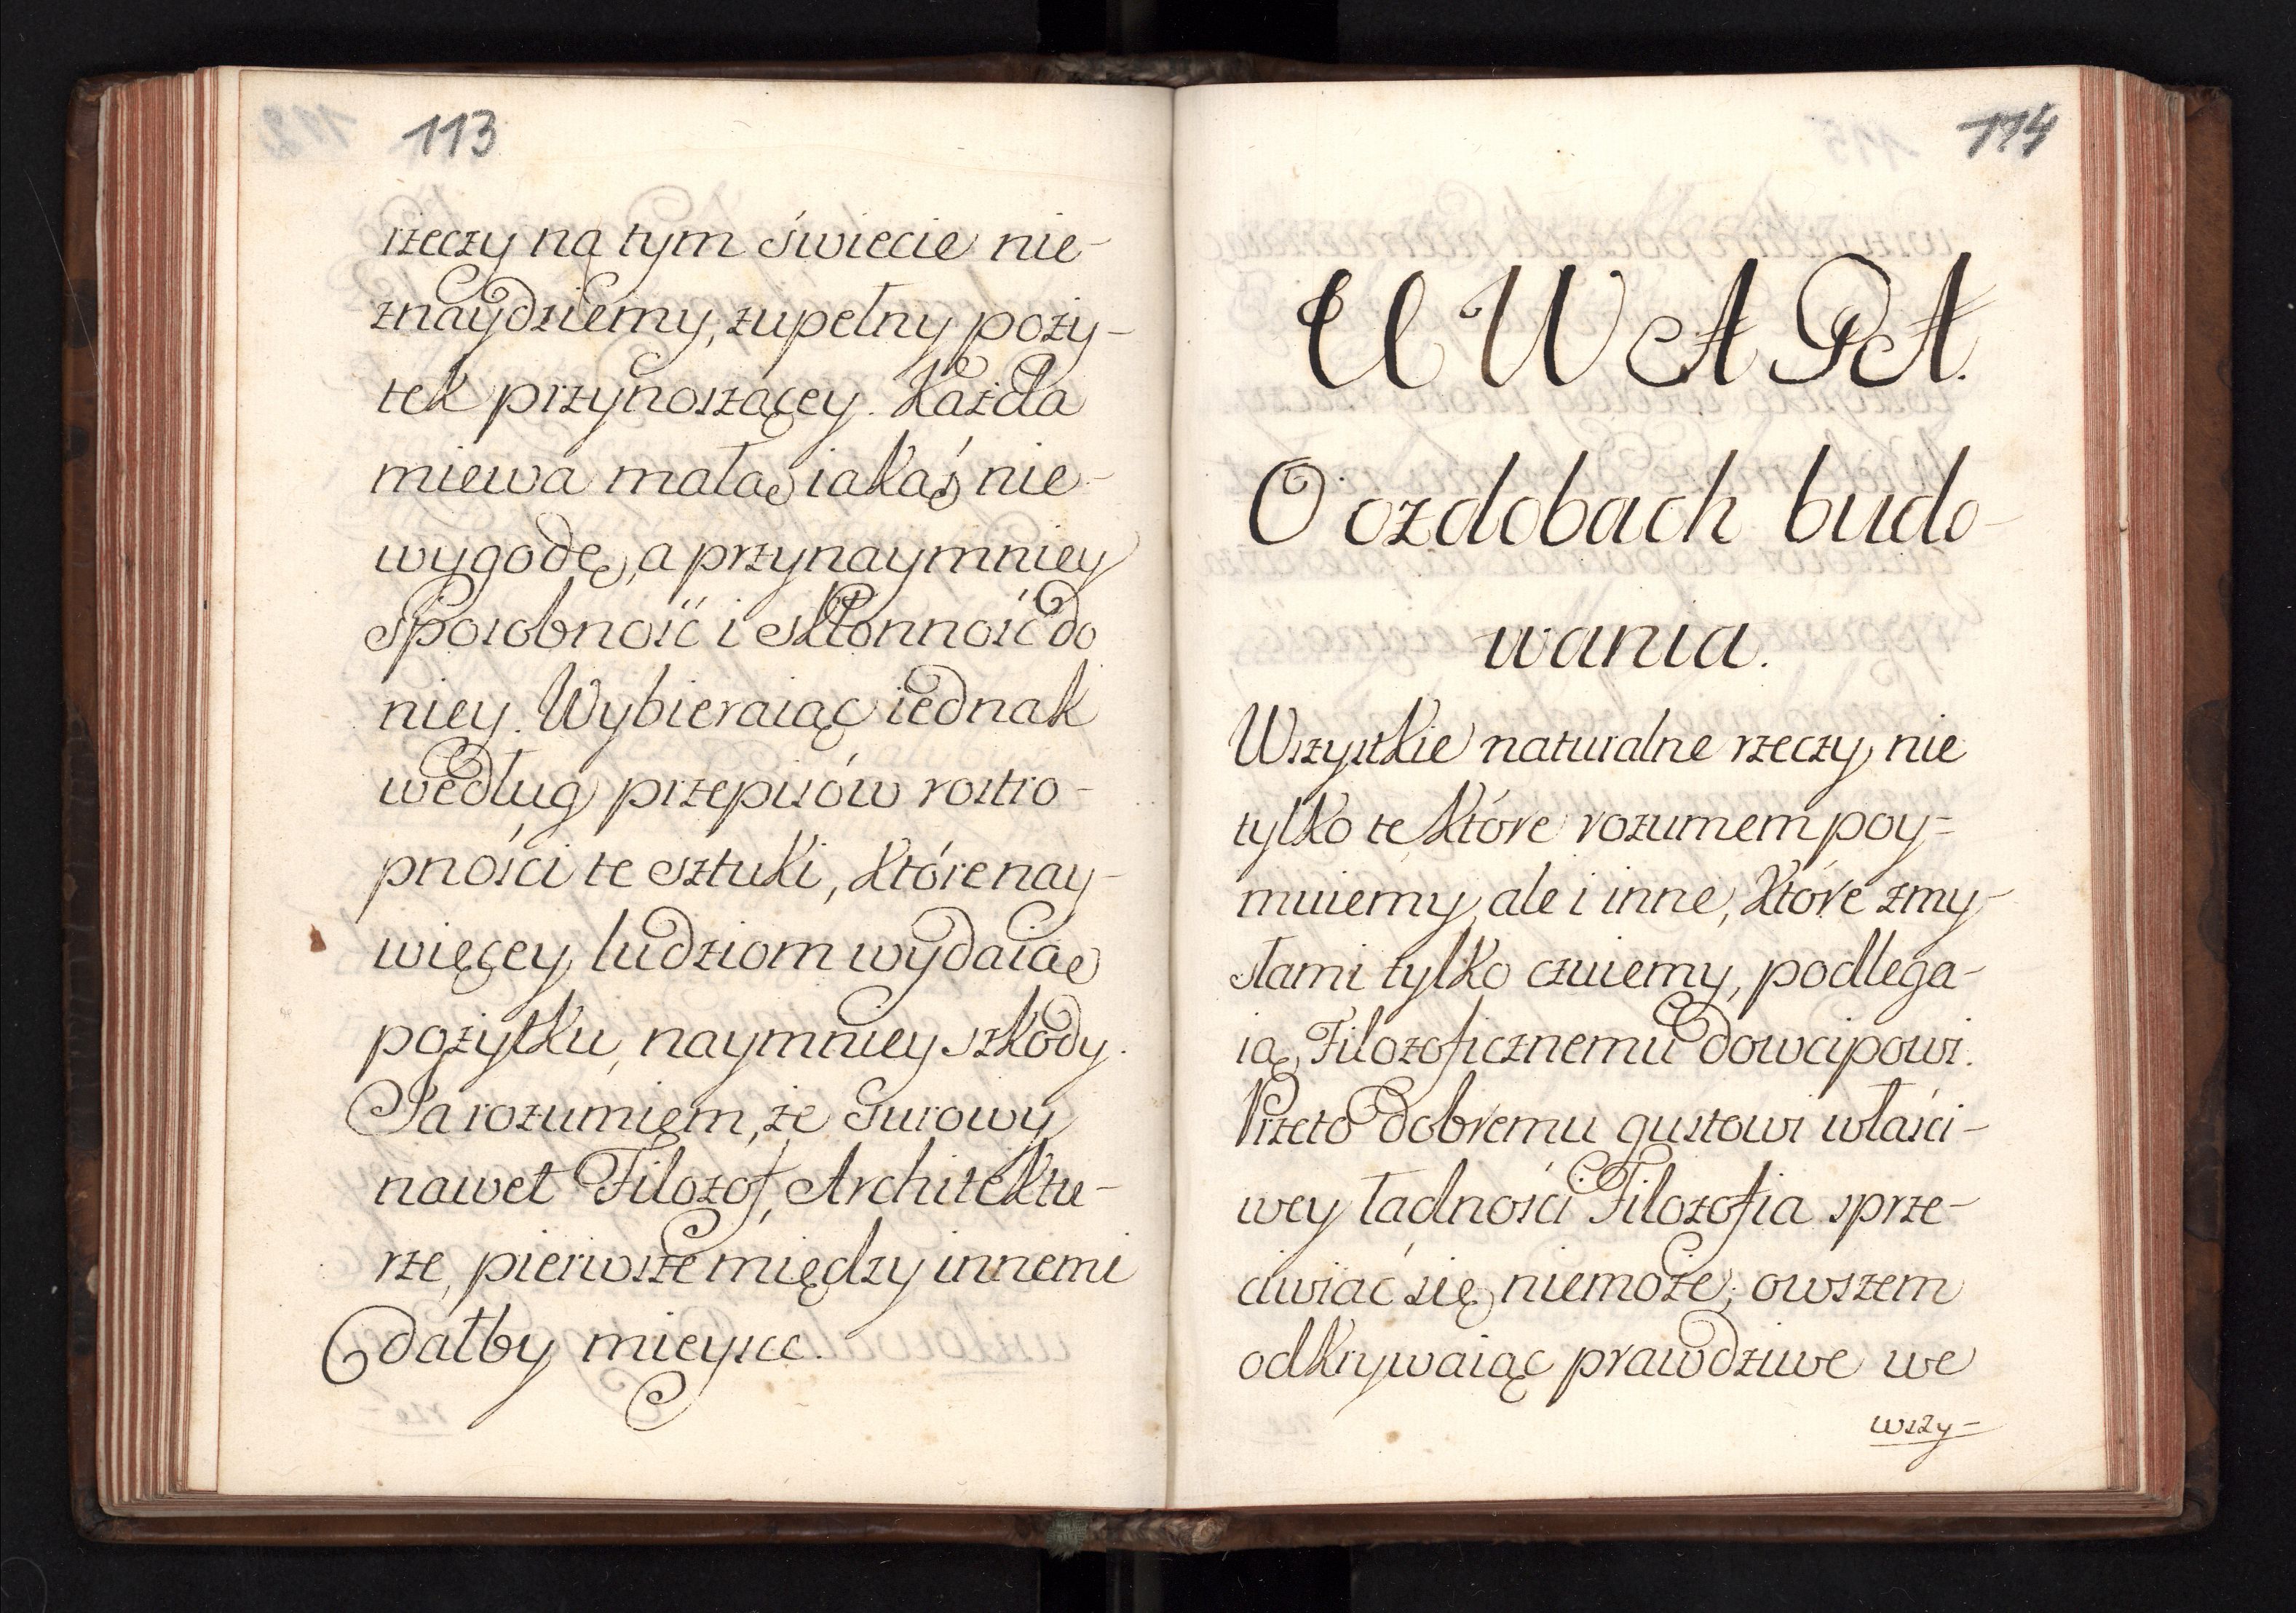 113
rzeczy na tym świecie nie-
znaydziemy, zupełny poży-
tek przynoszącey. Każda
miewa małą iakąś nie-
wygodę, a przynaymniey
sposobność i skłonność do
niey. Wybieraiąc iednak
według przepisów rostro-
pności te sztuki, które nay-
więcey ludziom wydaią
pożytku, naymniey szkody.
Ja rozumięm, że surowy
nawet Filozof, Architektu-
rze, pierwsze między innemi
dałby mieysce.
114
UWAGA.
O ozdobach budo-
wania.
Wszystkie naturalne rzeczy, nie
tylko te które rozumem poy-
muiemy, ale i inne, które zmy-
słami tylko czuiemy, podlega-
ią Filozoficznemu dowcipowi.
Przeto dobremu gustowi właści-
wey ładności Filozofia sprze-
ciwiać się niemoże; owszem
odkrywaiąc prawdziwe we
wszy-